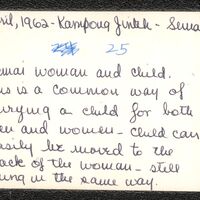 ril, 1962 - Kampong Jintah - Semai
25
mai woman and child.
is is a common way of
rrying a child for both
en and women - child can
asily be moved to the
ack of the woman - still
ung in the same way.